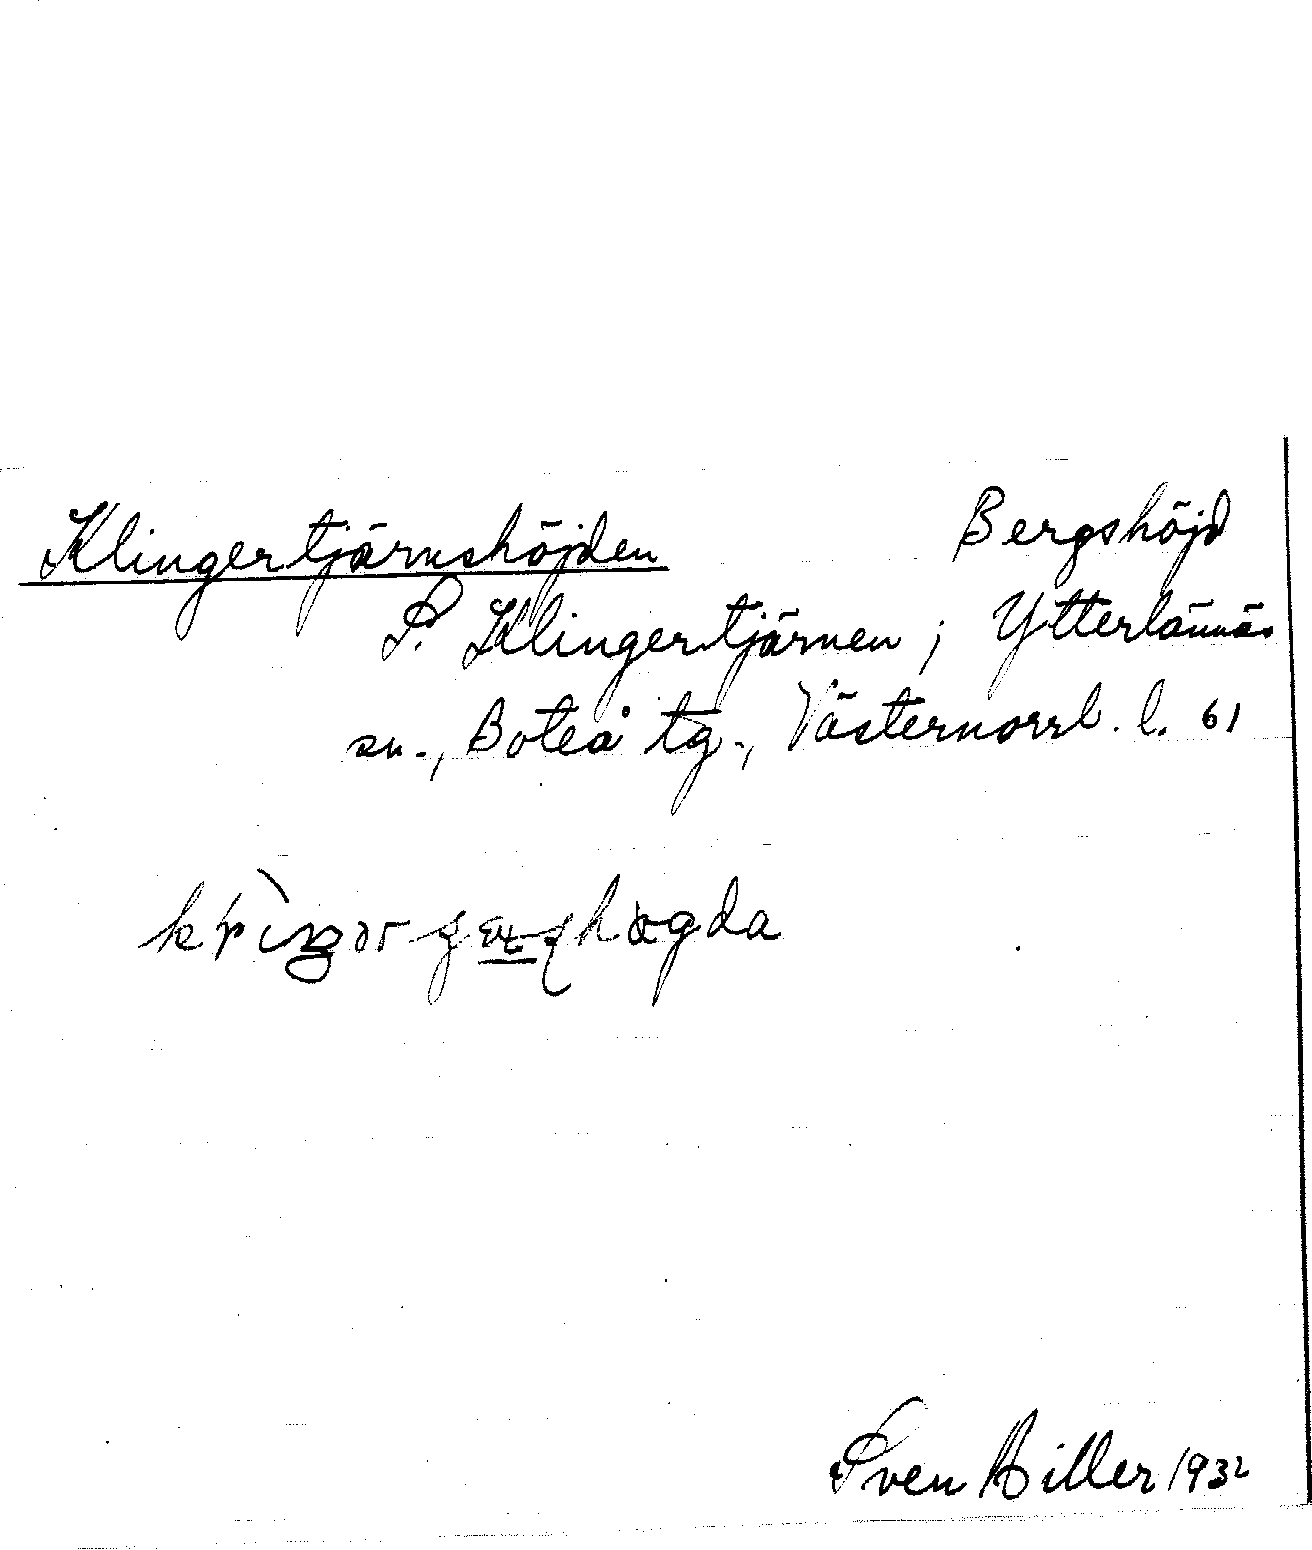 Klingertjärnshöjden Bergshöjd
S. Klingertjärnen; Ytterlännäs
sn., Boteå tg., Västernorrl. l. 61
Sven Hiller 1932